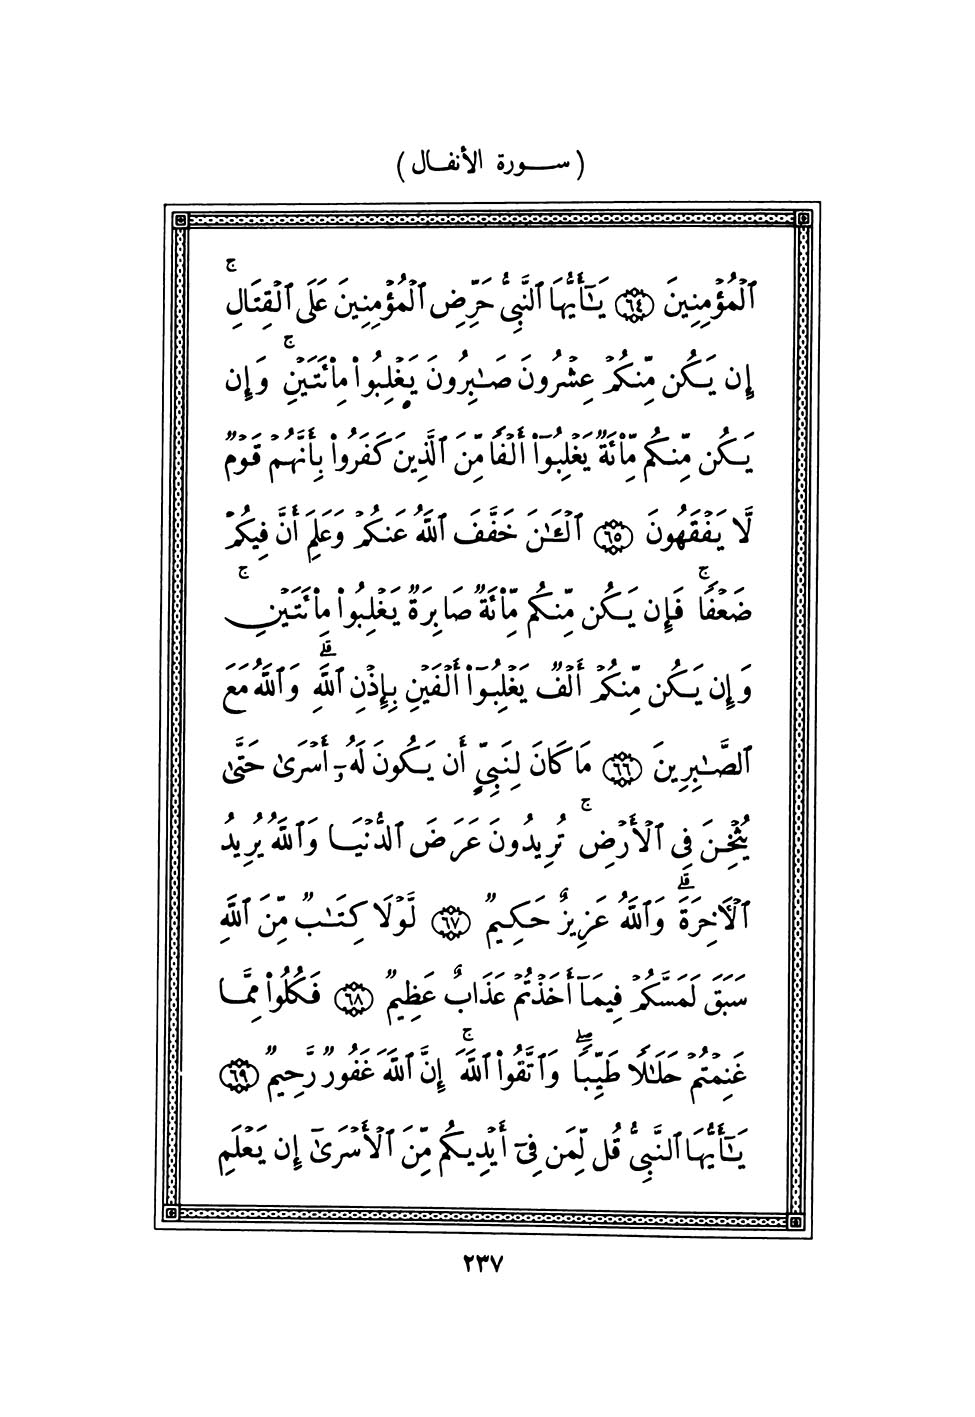 ( سورة الأنفال )
ٱلْمُؤْمِنِينَ ٦٤ يَـٰٓأَيُّهَا ٱلنَّبِىُّ حَرِّضِ ٱلْمُؤْمِنِينَ عَلَى ٱلْقِتَالِ ۚ
إِن يَكُن مِّنكُمْ عِشْرُونَ صَـٰبِرُونَ يَغْلِبُوا۟ مِا۟ئَتَيْنِ ۚ وَإِن
يَكُن مِّنكُم مِّا۟ئَةٌ يَغْلِبُوٓا۟ أَلْفًا مِّنَ ٱلَّذِينَ كَفَرُوا۟ بِأَنَّهُمْ قَوْمٌ
لَّا يَفْقَهُونَ ٦٥ ٱلْـَٔـٰنَ خَفَّفَ ٱللَّهُ عَنكُمْ وَعَلِمَ أَنَّ فِيكُمْ
ضَعْفًا ۚ فَإِن يَكُن مِّنكُم مِّا۟ئَةٌ صَابِرَةٌ يَغْلِبُوا۟ مِا۟ئَتَيْنِ ۚ
وَإِن يَكُن مِّنكُمْ أَلْفٌ يَغْلِبُوٓا۟ أَلْفَيْنِ بِإِذْنِ ٱللَّهِ ۗ وَٱللَّهُ مَعَ
ٱلصَّـٰبِرِينَ ٦٦ مَا كَانَ لِنَبِىٍّ أَن يَكُونَ لَهُۥٓ أَسْرَىٰ حَتَّىٰ
يُثْخِنَ فِى ٱلْأَرْضِ ۚ تُرِيدُونَ عَرَضَ ٱلدُّنْيَا وَٱللَّهُ يُرِيدُ
ٱلْـَٔاخِرَةَ ۗ وَٱللَّهُ عَزِيزٌ حَكِيمٌ ٦٧ لَّوْلَا كِتَـٰبٌ مِّنَ ٱللَّهِ
سَبَقَ لَمَسَّكُمْ فِيمَآ أَخَذْتُمْ عَذَابٌ عَظِيمٌ ٦٨ فَكُلُوا۟ مِمَّا
غَنِمْتُمْ حَلَـٰلًا طَيِّبًا ۖ وَٱتَّقُوا۟ ٱللَّهَ ۚ إِنَّ ٱللَّهَ غَفُورٌ رَّحِيمٌ ٦٩
يَـٰٓأَيُّهَا ٱلنَّبِىُّ قُل لِّمَن فِىٓ أَيْدِيكُم مِّنَ ٱلْأَسْرَىٰٓ إِن يَعْلَمِ
٢٣٧